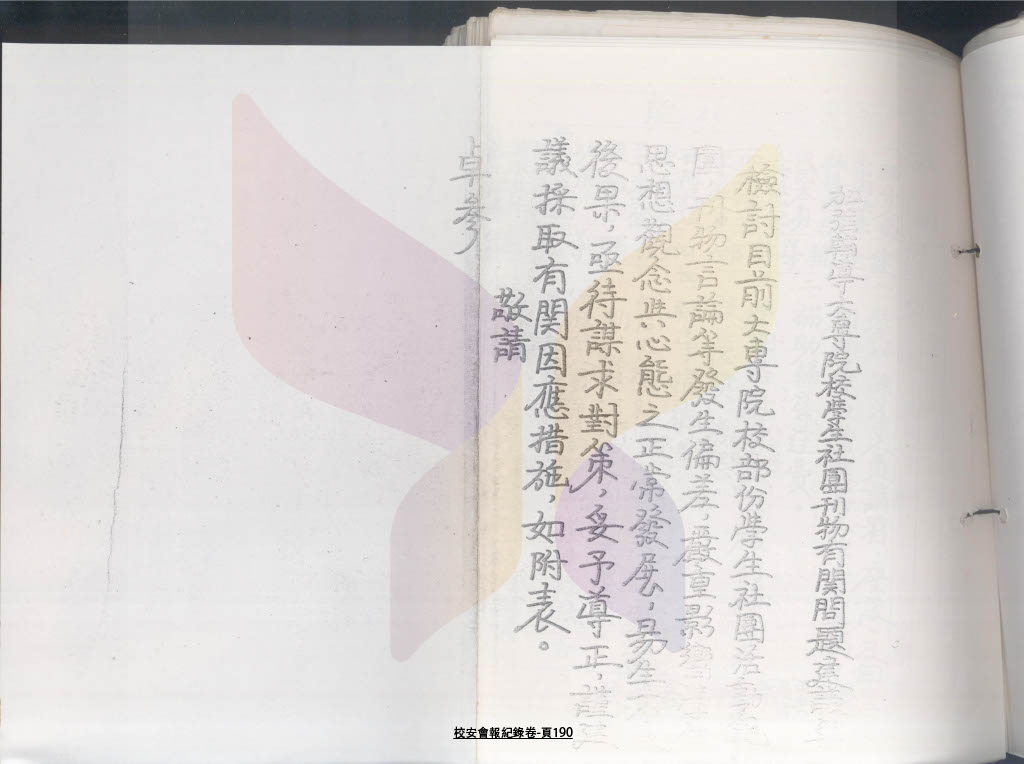 加強輔導大專院校學生社團刊物有関問題建議
檢討目前大專院校部份學生社團活動
刊物言論等發生偏差，嚴重影響
思想觀念與心態之正常發展，易生
後果，亟待謀求對策，妥予導正，謹建
議採取有関因應措施，如附表。
敬請
卓參
校安會報紀錄卷-頁190